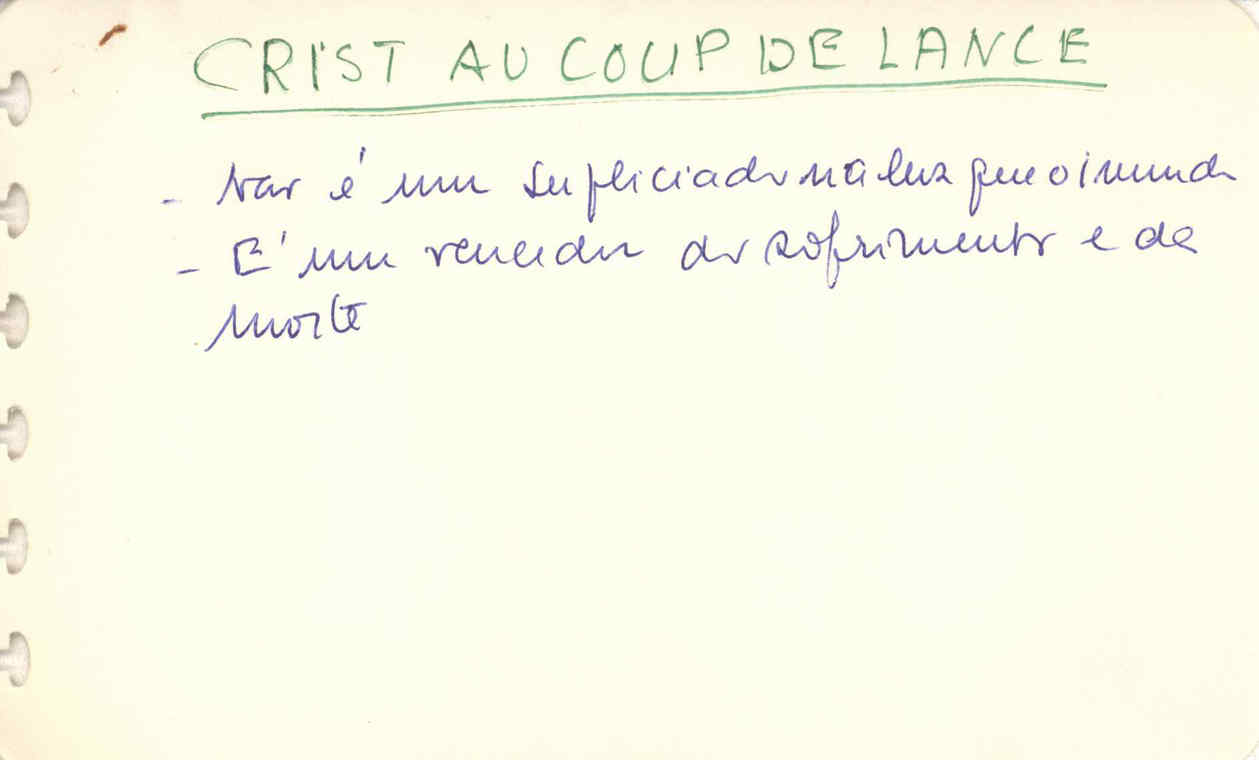 CRIST AU COUP DE LANCE
- Não é um supliciado na luz que o inunda
- É um vencedor do sofrimento e da
morte